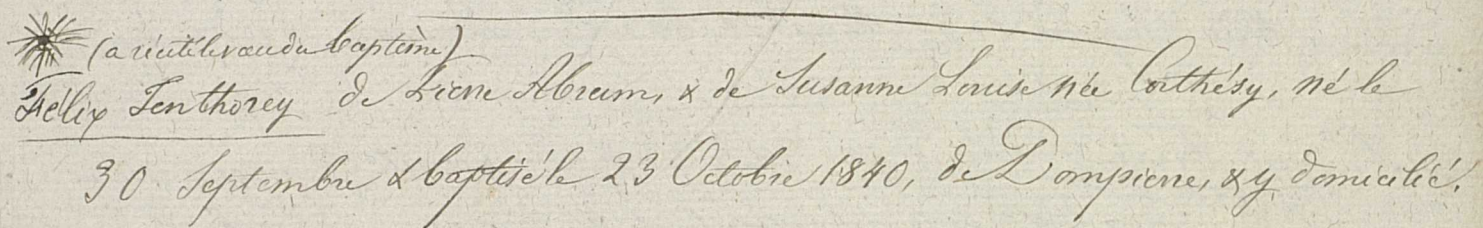 (a récité le vœu du baptême)
Félix Tenthorey de Pierre Abram, & de Susanne Louise née Corthésy, né le
30 Septembre & baptisé le 23 Octobre 1840, de Dompierre, & y domicilié.